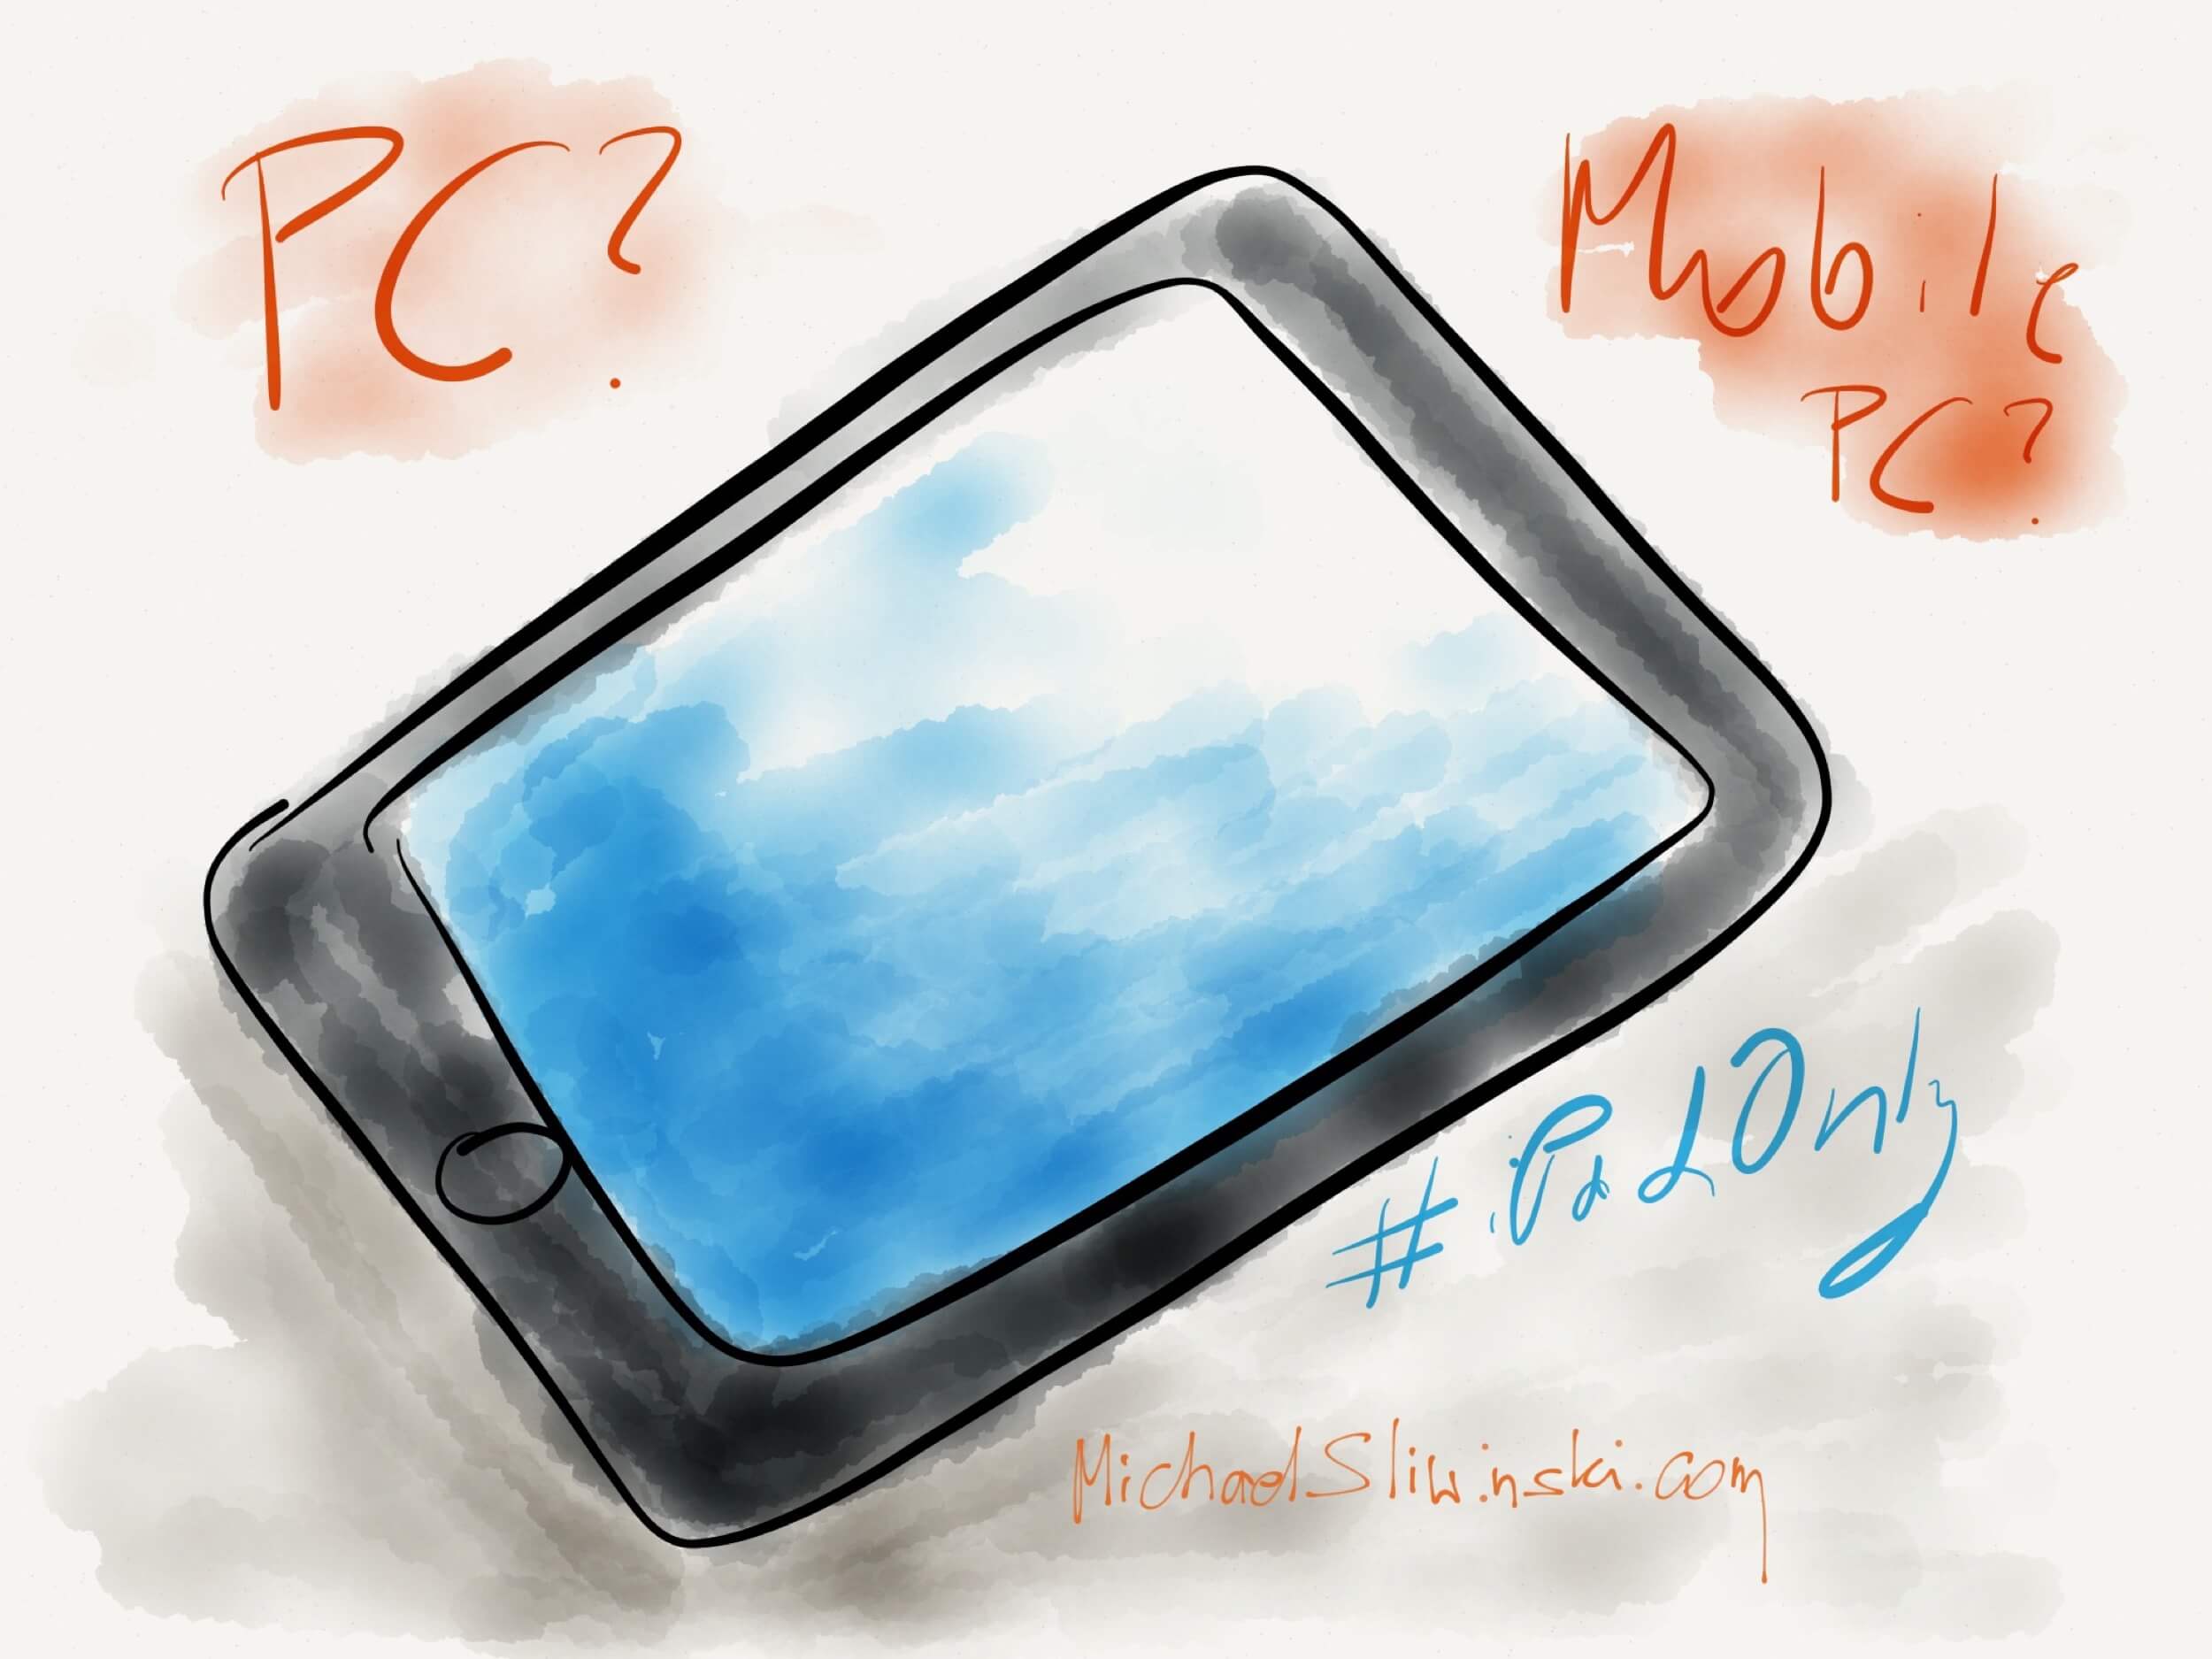 PC?
Mobile
PC?
#iPadOnly
MichaelSliwinski.com